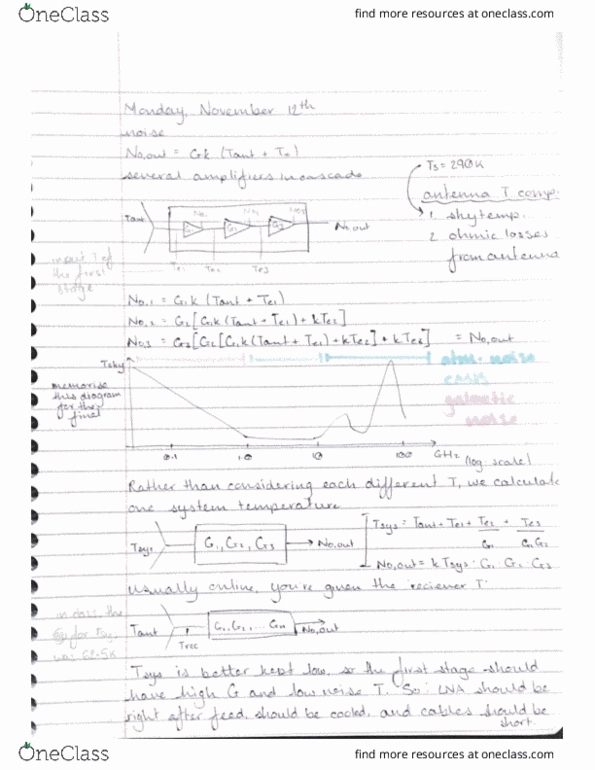 OneClass
find more resources at oneclass.com
Monday, November 12th
noise
No,out = Gk (Tant + Te)
several amplifiers in cascade
Ts = 290K
antenna T comp.
1. sky temp.
2 ohmic losses
from antenna
Tant
No,out
Te1 Te2 Te3
input T of
the first
stage
No,1 = G1k (Tant + Te1)
No,2 = G2[G1k(Tant + Te1) + kTe2]
No,3 = G3[G2[G1k(Tant + Te1) + kTe2] + kTe3] = No,out
Tsky
atm. noise
galactic
noise
memorise
this diagram
for the
final
0.1 1.0 10 100 GHz (log scale)
Rather than considering each different T, we calculate
one system temperature
Tsys
G1, G2, G3
No,out
Tsys = Tant + Te1 + Te2/G1 + Te3/G1G2
No,out = kTsys · G1 · G2 · G3
usually online, you're given the reciever T:
in class, the
for Tsys
Tant
Trec
G1, G2, ... Gn
No,out
Tsys is better kept low, so the first stage should
have high G and low noise T. So: LNA should be
right after feed, should be cooled, and cables should be
short.
OneClass
find more resources at oneclass.com